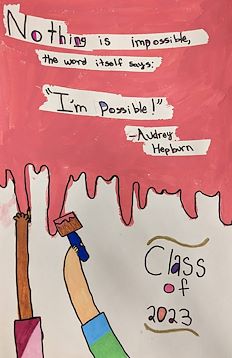 Nothing is impossible,
the word itself says:
"I'm possible!"
-Audrey
Hepburn
Class
of
2023